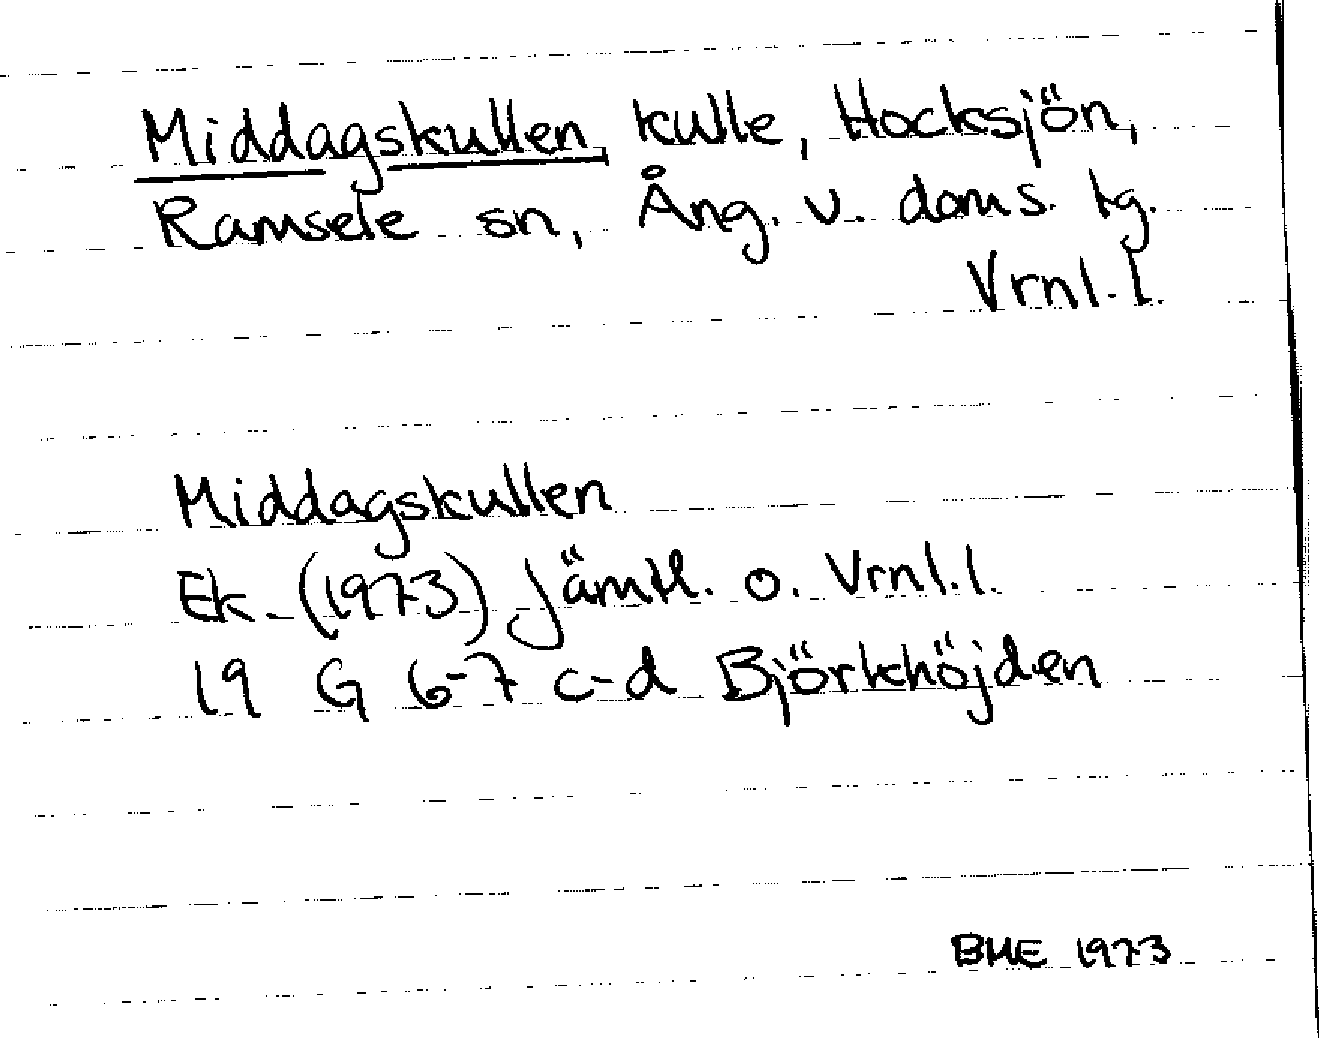 Middagskullen, kulle, Hocksjön,
Ramsele sn, Ång. v. doms. tg.
Vrnl. l.
Middagskullen
Ek. (1973) Jämtl. o. Vrnl. l.
19 G 6-7 c-d Björkhöjden
BME 1973